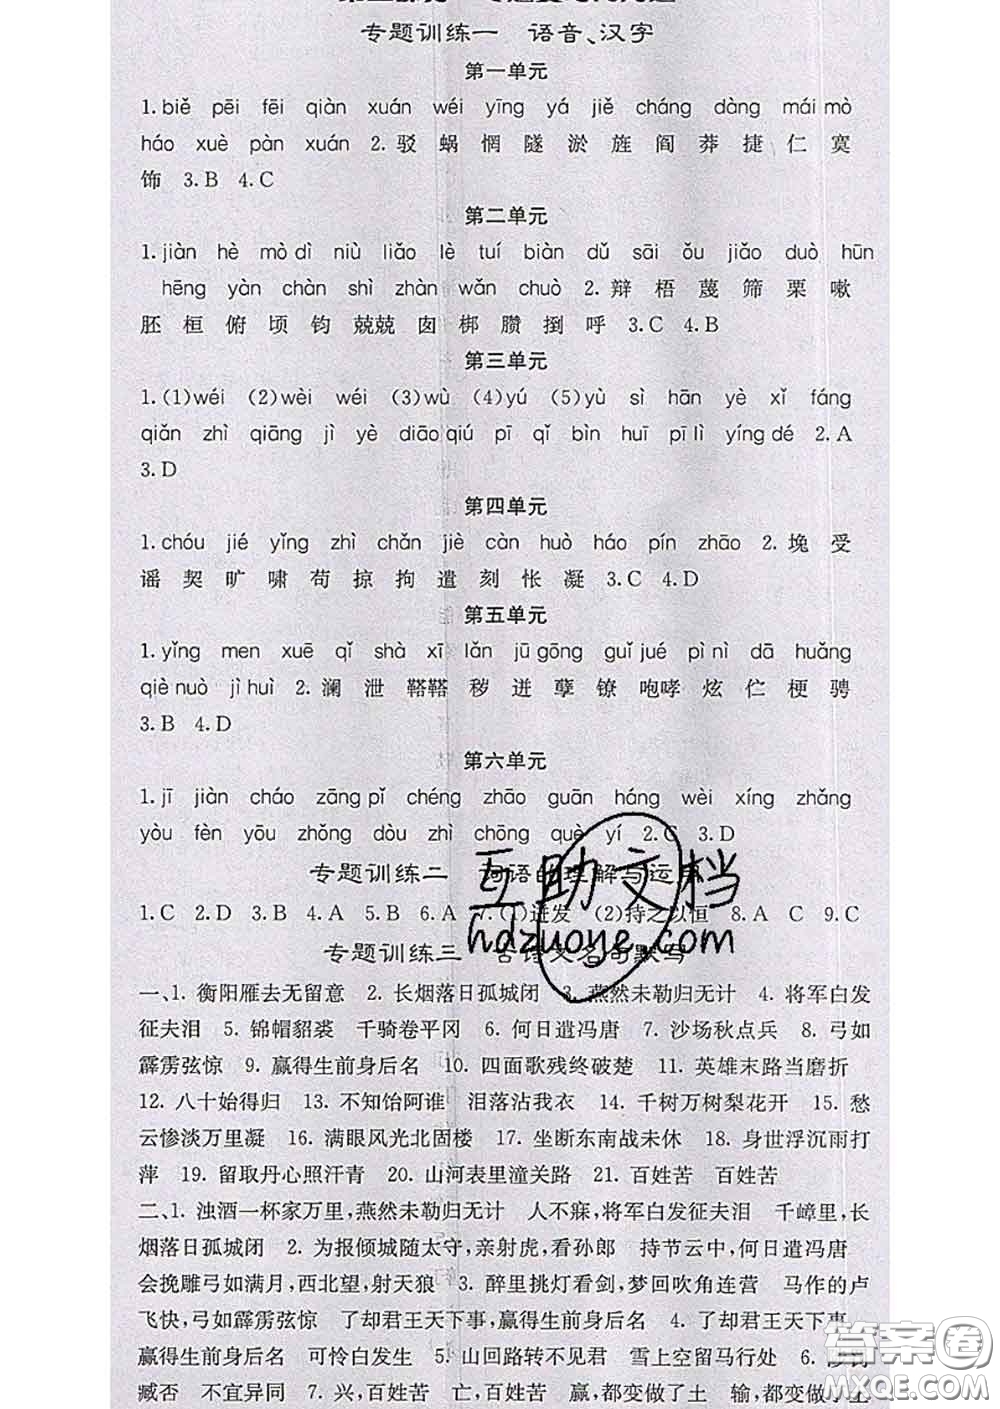 专题训练一 语音、汉字
第一单元
1. biě pēi fēi qiàn xuán wéi yīng yá jiě cháng dàng mái mò
háo xuè pàn xuán 2. 驳 蜗 惘 隧 淤 旌 阎 莽 捷 仁 寞
饰 3. B 4. C
第二单元
1. jiàn hè mò dì niù liǎo lè tuí biàn dǔ sāi ǒu jiǎo duò hūn
hēng yàn chàn shì zhàn wǎn chuò 2. 辩 梧 蔑 筛 栗 嗽
胚 桓 俯 顷 钧 兢兢 囱 梆 臜 捯 呼 3. C 4. B
第三单元
1. (1) wéi (2) wèi wéi (3) wù (4) yú (5) yù sì hān yè xǐ fáng
qiǎn zhì qiāng jì yè diāo qiú pī qǐ bìn huī pī lì yíng dé 2. A
3. D
第四单元
1. chóu jié yǐng zhì chǎn jiè càn huò háo pín zhāo 2. 堍 受
谣 契 旷 啸 苟 掠 拘 遣 刻 怅 凝 3. C 4. D
第五单元
1. yǐng men xuē qǐ shà xī lǎn jū gōng guǐ jué pì nì dā huǎng
qiè nuò jì huì 2. 澜 泄 鞳鞳 秽 迸 孽 镣 咆哮 炫 伫 梗 骋
3. B 4. D
第六单元
1. jī jiàn cháo zāng pǐ chéng zhāo guān háng wèi xíng zhǎng
yòu fèn yōu zhǒng dòu zhì chōng què yí 2. C 3. D
专题训练二 词语的理解与运用
1. C 2. D 3. B 4. A 5. B 6. A 7. (1) 迸发 (2) 持之以恒 8. A C 9. C
互助文档
hdzuoye.com
专题训练三 古诗文名句默写
一、1. 衡阳雁去无留意 2. 长烟落日孤城闭 3. 燕然未勒归无计 4. 将军白发
征夫泪 5. 锦帽貂裘 千骑卷平冈 6. 何日遣冯唐 7. 沙场秋点兵 8. 弓如
霹雳弦惊 9. 赢得生前身后名 10. 四面歌残终破楚 11. 英雄末路当磨折
12. 八十始得归 13. 不知饴阿谁 泪落沾我衣 14. 千树万树梨花开 15. 愁
云惨淡万里凝 16. 满眼风光北固楼 17. 坐断东南战未休 18. 身世浮沉雨打
萍 19. 留取丹心照汗青 20. 山河表里潼关路 21. 百姓苦 百姓苦
二、1. 浊酒一杯家万里,燕然未勒归无计 人不寐,将军白发征夫泪 千嶂里,长
烟落日孤城闭 2. 为报倾城随太守,亲射虎,看孙郎 持节云中,何日遣冯唐
会挽雕弓如满月,西北望,射天狼 3. 醉里挑灯看剑,梦回吹角连营 马作的卢
飞快,弓如霹雳弦惊 了却君王天下事,赢得生前身后名 4. 了却君王天下事,
赢得生前身后名 可怜白发生 5. 山回路转不见君 雪上空留马行处 6. 陟罚
臧否 不宜异同 7. 兴,百姓苦 亡,百姓苦 赢,都变做了土 输,都变做了土
答案圈
MXQE.COM